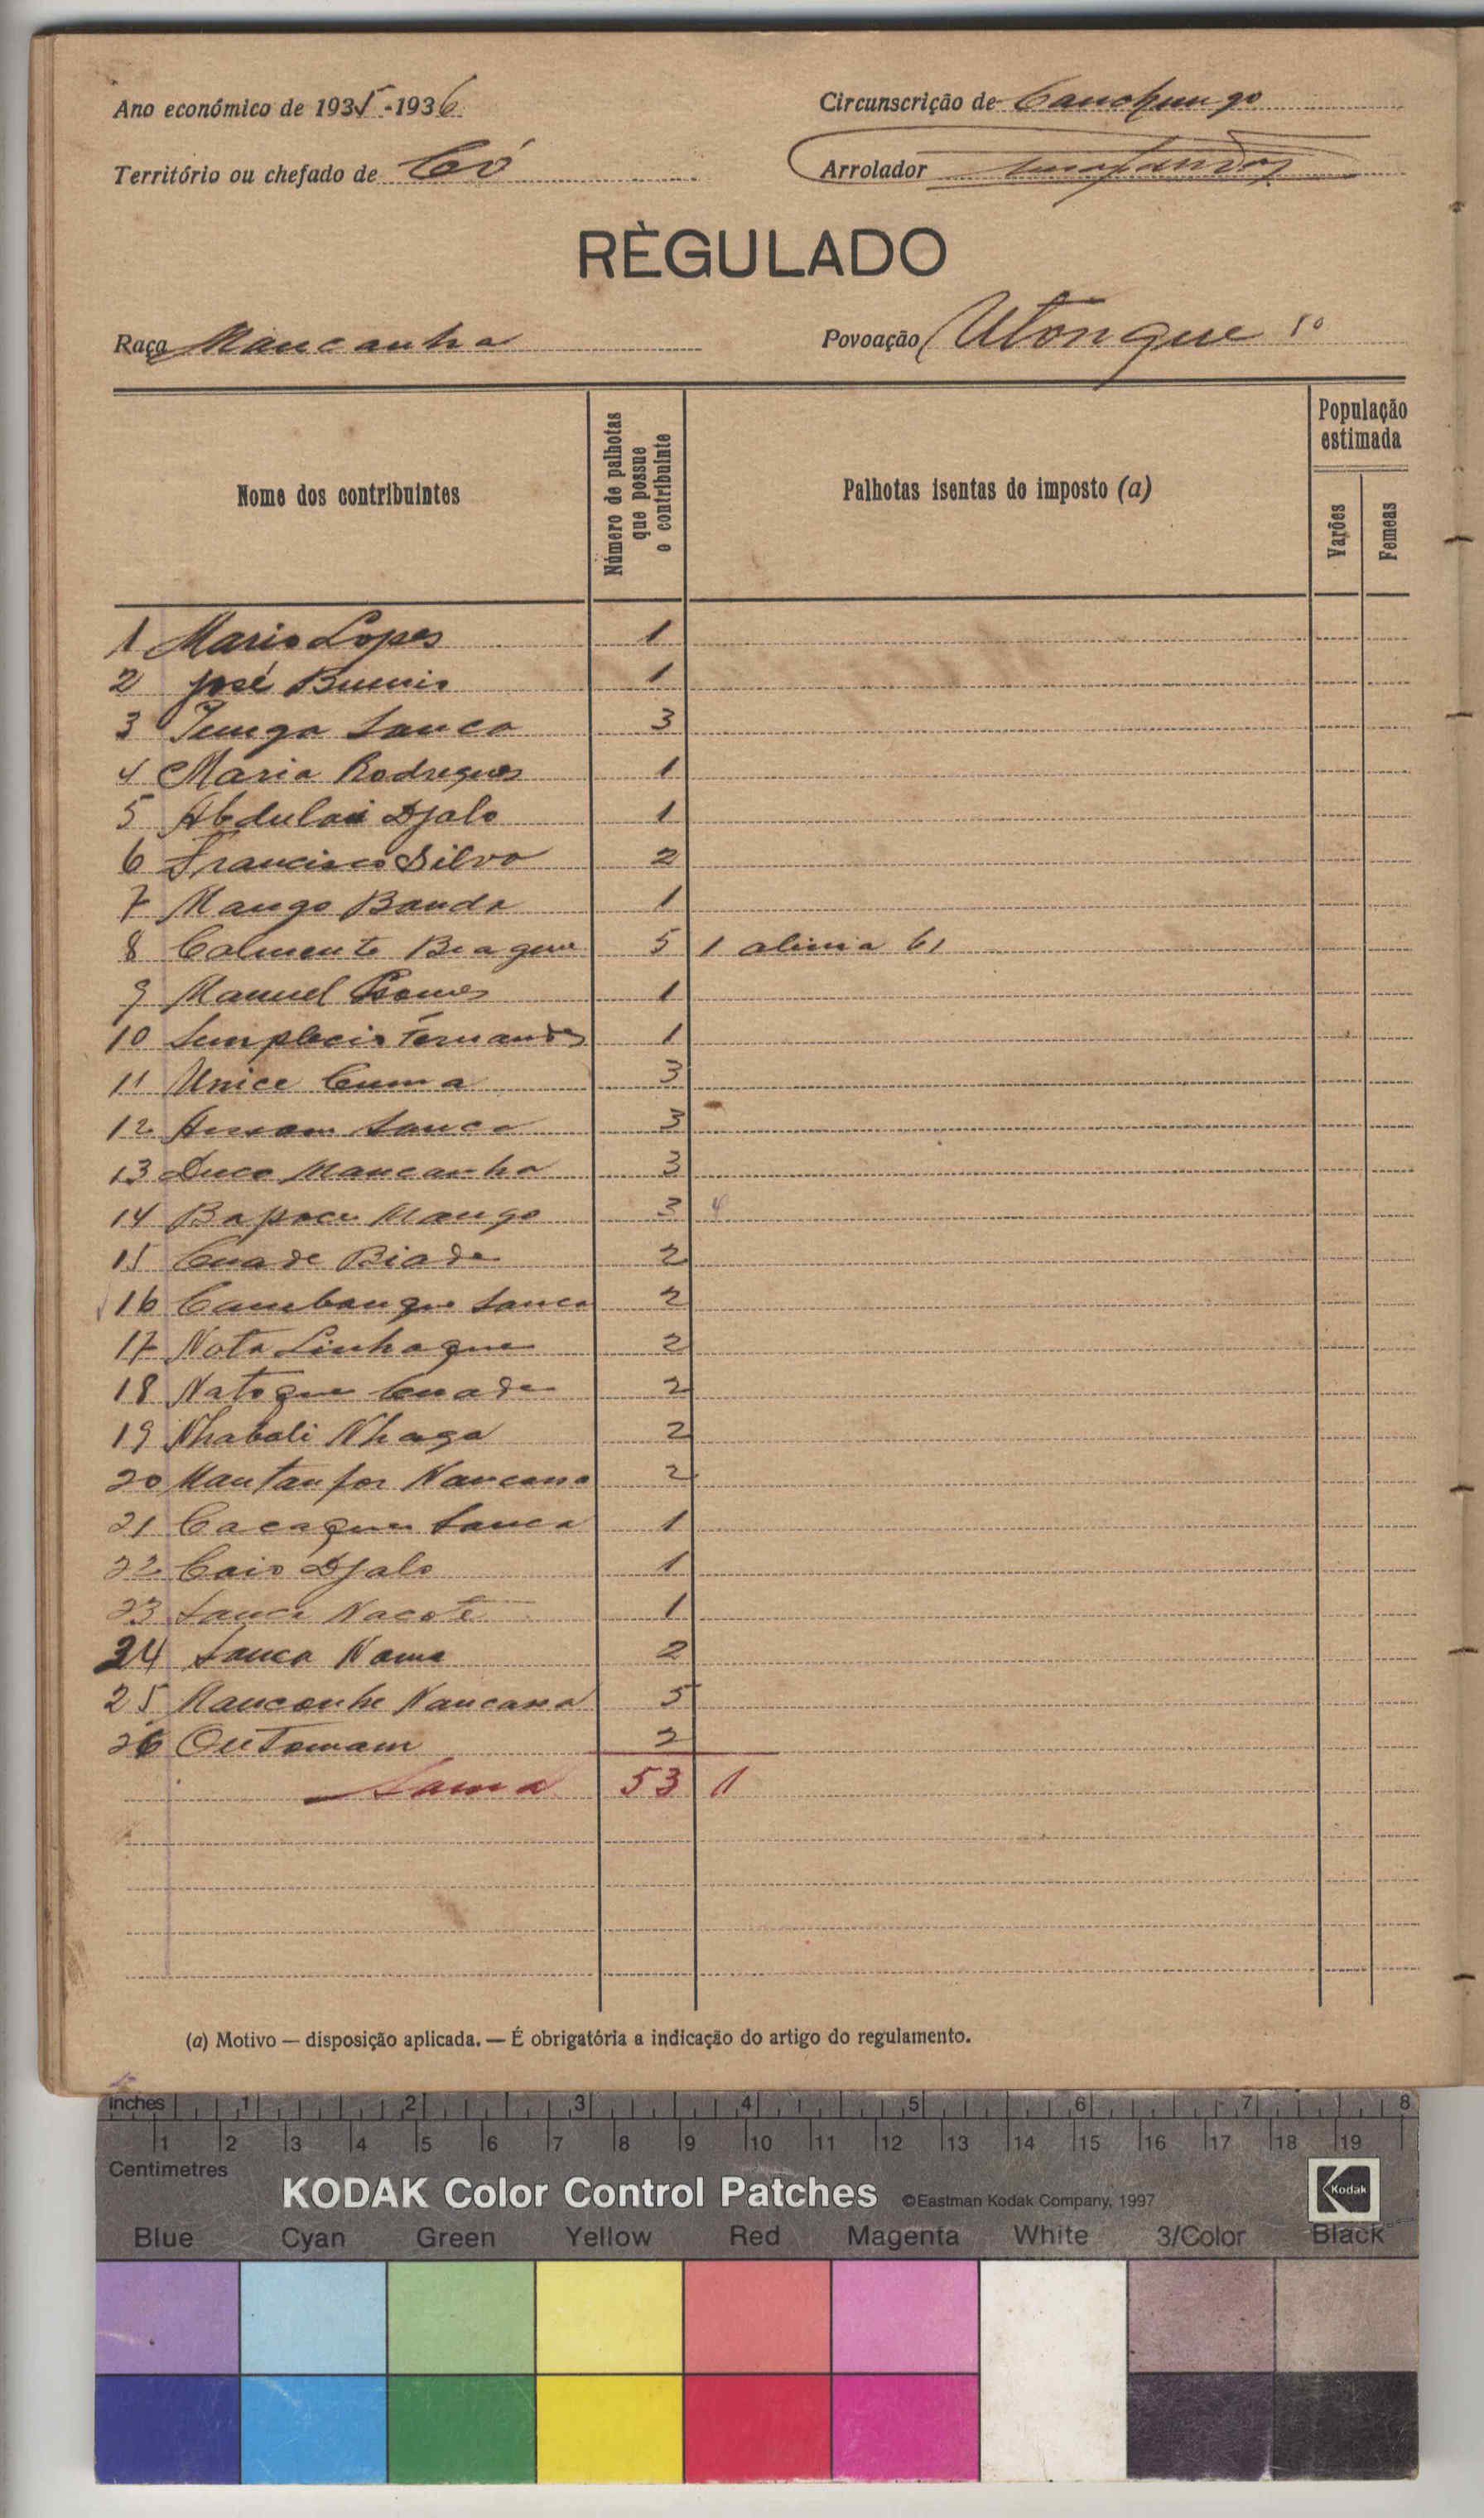 Ano económico de 1935-1936
Circunscrição de Canchungo
Território ou chefado de Có
Arrolador
RÈGULADO
Raça Mancanha
Povoação Utonque 1º
Nome dos contribuintes
Número de palhotas que possue o contribuinte
Palhotas isentas do imposto (a)
População estimada
Varões
Femeas
1 Mario Lopes 1
2 José 1
3 Sanca 3
4 Maria Rodrigues 1
5 Abdulai Djalo 1
6 Francisco Silva 2
7 Mango Banda 1
8 5 1 alinia b)
9 Manuel Gomes 1
10 Fernandes 1
11 Unice Cuma 3
12 Sanca 3
13 Duco Mancanha 3
14 Mango 3 4
15 Cuade Biade 2
16 Cambanque Sanca 2
17 Nota Linhaque 2
18 Natoque Cuade 2
19 Nhabali Nhaga 2
20 2
21 Cacaquer Sanca 1
22 Caio Djalo 1
23 Sanca Nacote 1
24 Sanca Nama 2
25 5
26 2
Soma 53 1
(a) Motivo — disposição aplicada. — É obrigatória a indicação do artigo do regulamento.
inches 1 2 3 4 5 6 7 8
1 2 3 4 5 6 7 8 9 10 11 12 13 14 15 16 17 18 19
Centimetres
KODAK Color Control Patches ©Eastman Kodak Company, 1997
Kodak
Blue Cyan Green Yellow Red Magenta White 3/Color Black